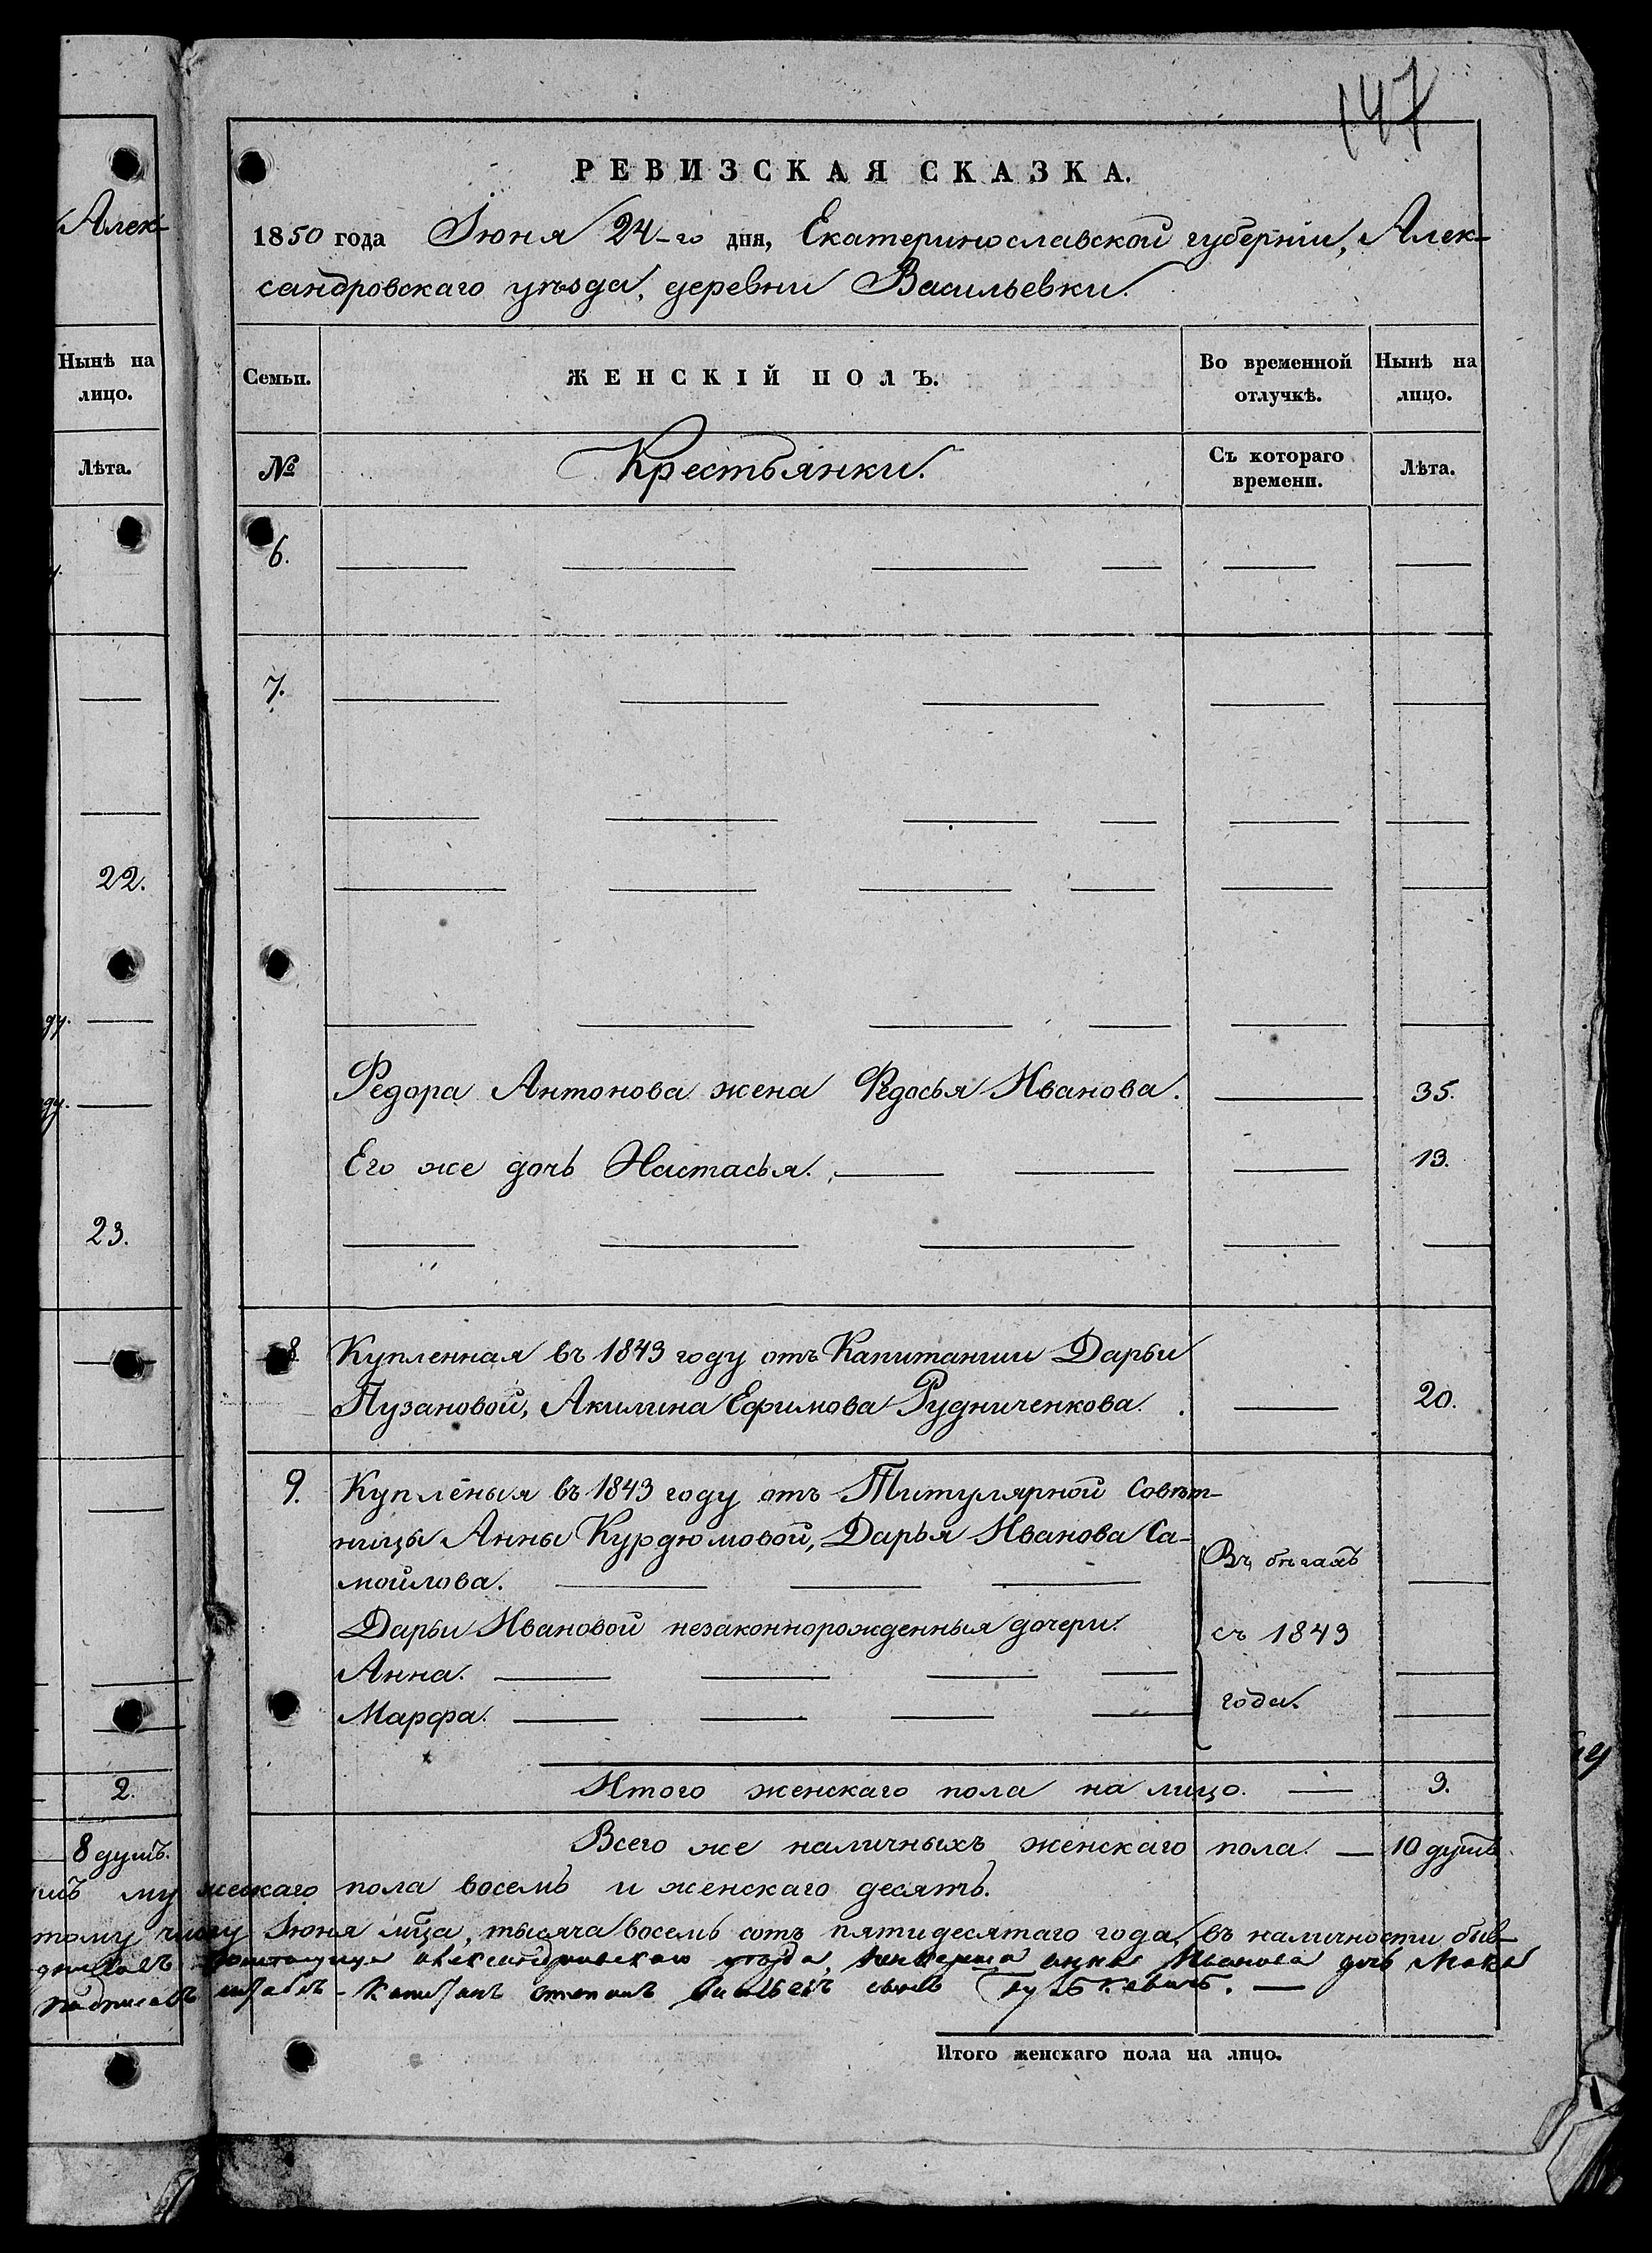 147
Алек-
Нынѣ на
лицо.
Лѣта.
22.
23.
2.
8 душъ.
РЕВИЗСКАЯ СКАЗКА.
1850 года Іюня 24-го дня, Екатеринославской губерніи, Алек-
сандровскаго уѣзда, деревни Васильевки.
Семьи.
ЖЕНСКІЙ ПОЛЪ.
Во временной
отлучкѣ.
Нынѣ на
лицо.
№
Крестьянки.
Съ котораго
времени.
Лѣта.
6.
7.
Федора Антонова жена Федосья Иванова. 35.
Его же дочь Настасья. 13.
8 Купленная въ 1843 году отъ Капитанши Дарьи
Пузановой, Акилина Ефимова Рудниченкова. 20.
9. Купленыя въ 1843 году отъ Титулярной Совѣт-
ницы Анны Курдюмовой, Дарья Иванова Са-
мойлова.
Дарьи Ивановой незаконнорожденныя дочери.
Анна.
Марфа.
Въ бѣгахъ
съ 1843
года.
Итого женскаго пола на лицо. — 3.
Всего же наличныхъ женскаго пола. — 10 душъ
мужескаго пола восемь и женскаго десять.
тому числу Іюня мца, тысяча восемь сотъ пятидесятаго года, въ наличности быв-
александровскаго уезда, анна Иванова дочь
подписалъ штабъ-капитанъ степанъ сынъ
Итого женскаго пола на лицо.